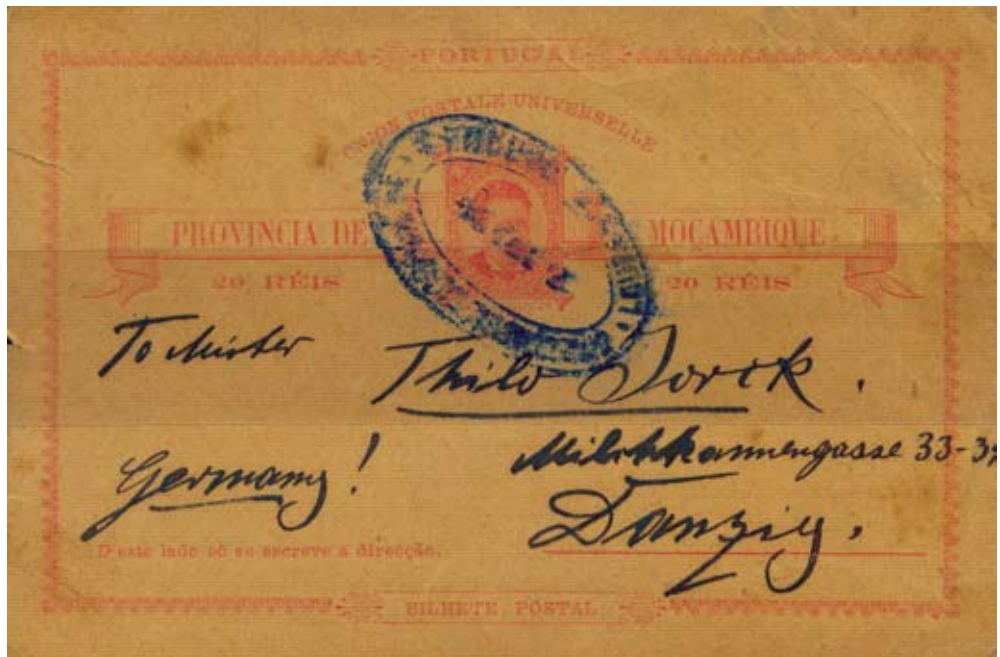 PORTUGAL
UNION POSTALE UNIVERSELLE
PROVINCIA DE MOÇAMBIQUE
20 RÉIS 20 RÉIS
To Mister Thilo Jorck.
Germany! Milchkannengasse 33-34
Danzig.
D'este lado só se escreve a direcção.
BILHETE POSTAL